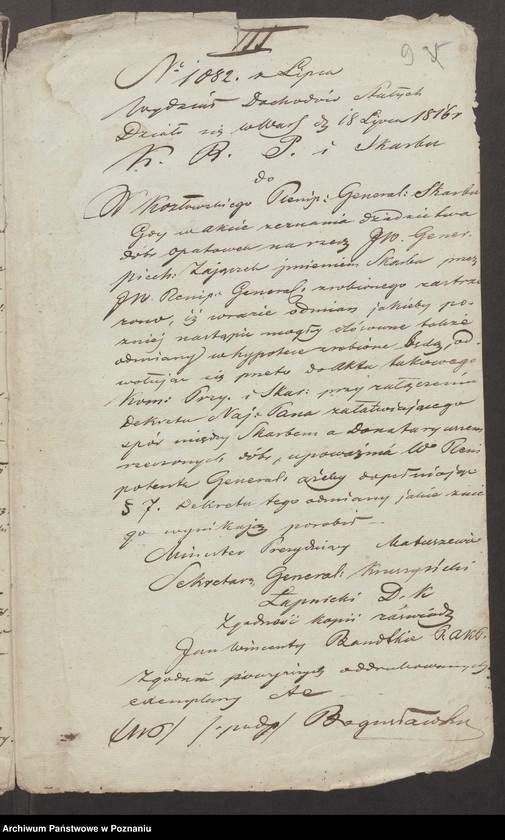 III
9
No 1082. a Lipca
Wydział Dochodów Stałych
Działo się w Wars. d. 18 Lipca 1816 r
K. R. P. i Skarbu
do
W Kozłowskiego Plenip: General: Skarbu
Gdy w akcie zeznania dziedzictwa
dóbr Opatowek na rzecz JW. Gener.
Piech: Zajączek imieniem Skarbu przez
JW. Plenip: General: zrobionego zastrze
żono, iż w razie odmian jakieby po-
zniej nastąpić mogły stósowne także
odmiany w hypotece zrobione będą, od-
wołując się przeto do Aktu takowego
Kom: Przy. i Skar: przy załączeniu
Dekretu Nay. Pana załatwiającego
spór między Skarbem a Donataryuszem
rzeczonych dóbr, upoważnia W Pleni
potenta General: ażeby dopełniając
§ 7. Dekretu tego odmiany jakie z nie
go wynikają porobił —
Minister Prezyduiący Matuszewic
Sekretarz General: Kruszyński
Łapnicki D. K
Zgodność kopii zaświadcz
Jan Wincenty Bandtkie R A K P.
Zgodność powyższych oddrukowanych
exemplarzy
/podp/ Bogusławski
Archiwum Państwowe w Poznaniu